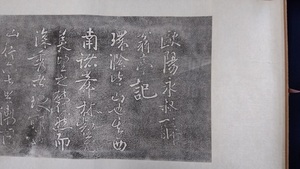 歐陽永叔醉
翁亭記
環滁皆山也其西
南諸峯林壑尤
美望之蔚然而
深秀者琅
山行六七里